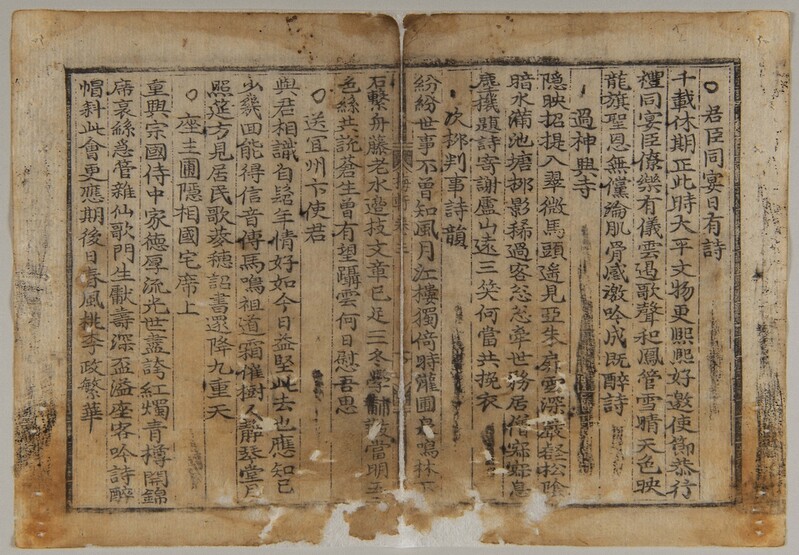 ○君臣同宴日有詩
千載休期正此時大平文物更熙熙好邀使節恭行
禮同宴臣僚樂有儀雲遏歌聲和鳳管雪晴天色映
龍旗聖恩無儻淪肌骨感激吟成既醉詩
過神興寺
隱映招提入翠微馬頭遙見亞朱扉雲深巖壑松陰
暗水滿池塘柳影稀過客怱怱牽世務居僧寂寂息
塵機題詩寄謝盧山遠三笑何當共挽衣
次柳判事詩韻
紛紛世事不曾知風月江樓獨倚時灌圃鳴林
石繫舟藤老水邊枝文章已足三冬學當明五
色絲共說蒼生曾有望躡雲何日慰吾思
○送宜州卞使君
與君相識自髫年情好如今日益堅此去也應知已
少幾回能得信音傳馬鳴祖道霜催樹人靜琴堂月
照筵方見居民歌麥穗詔書還降九重天
○座主圃隱相國宅席上
重興宗國侍中家德厚流光世盡誇紅燭青樽開錦
席哀絲急管雜仙歌門生獻壽深盃溢座客吟詩醉
帽斜此會更應期後日春風桃李政繁華